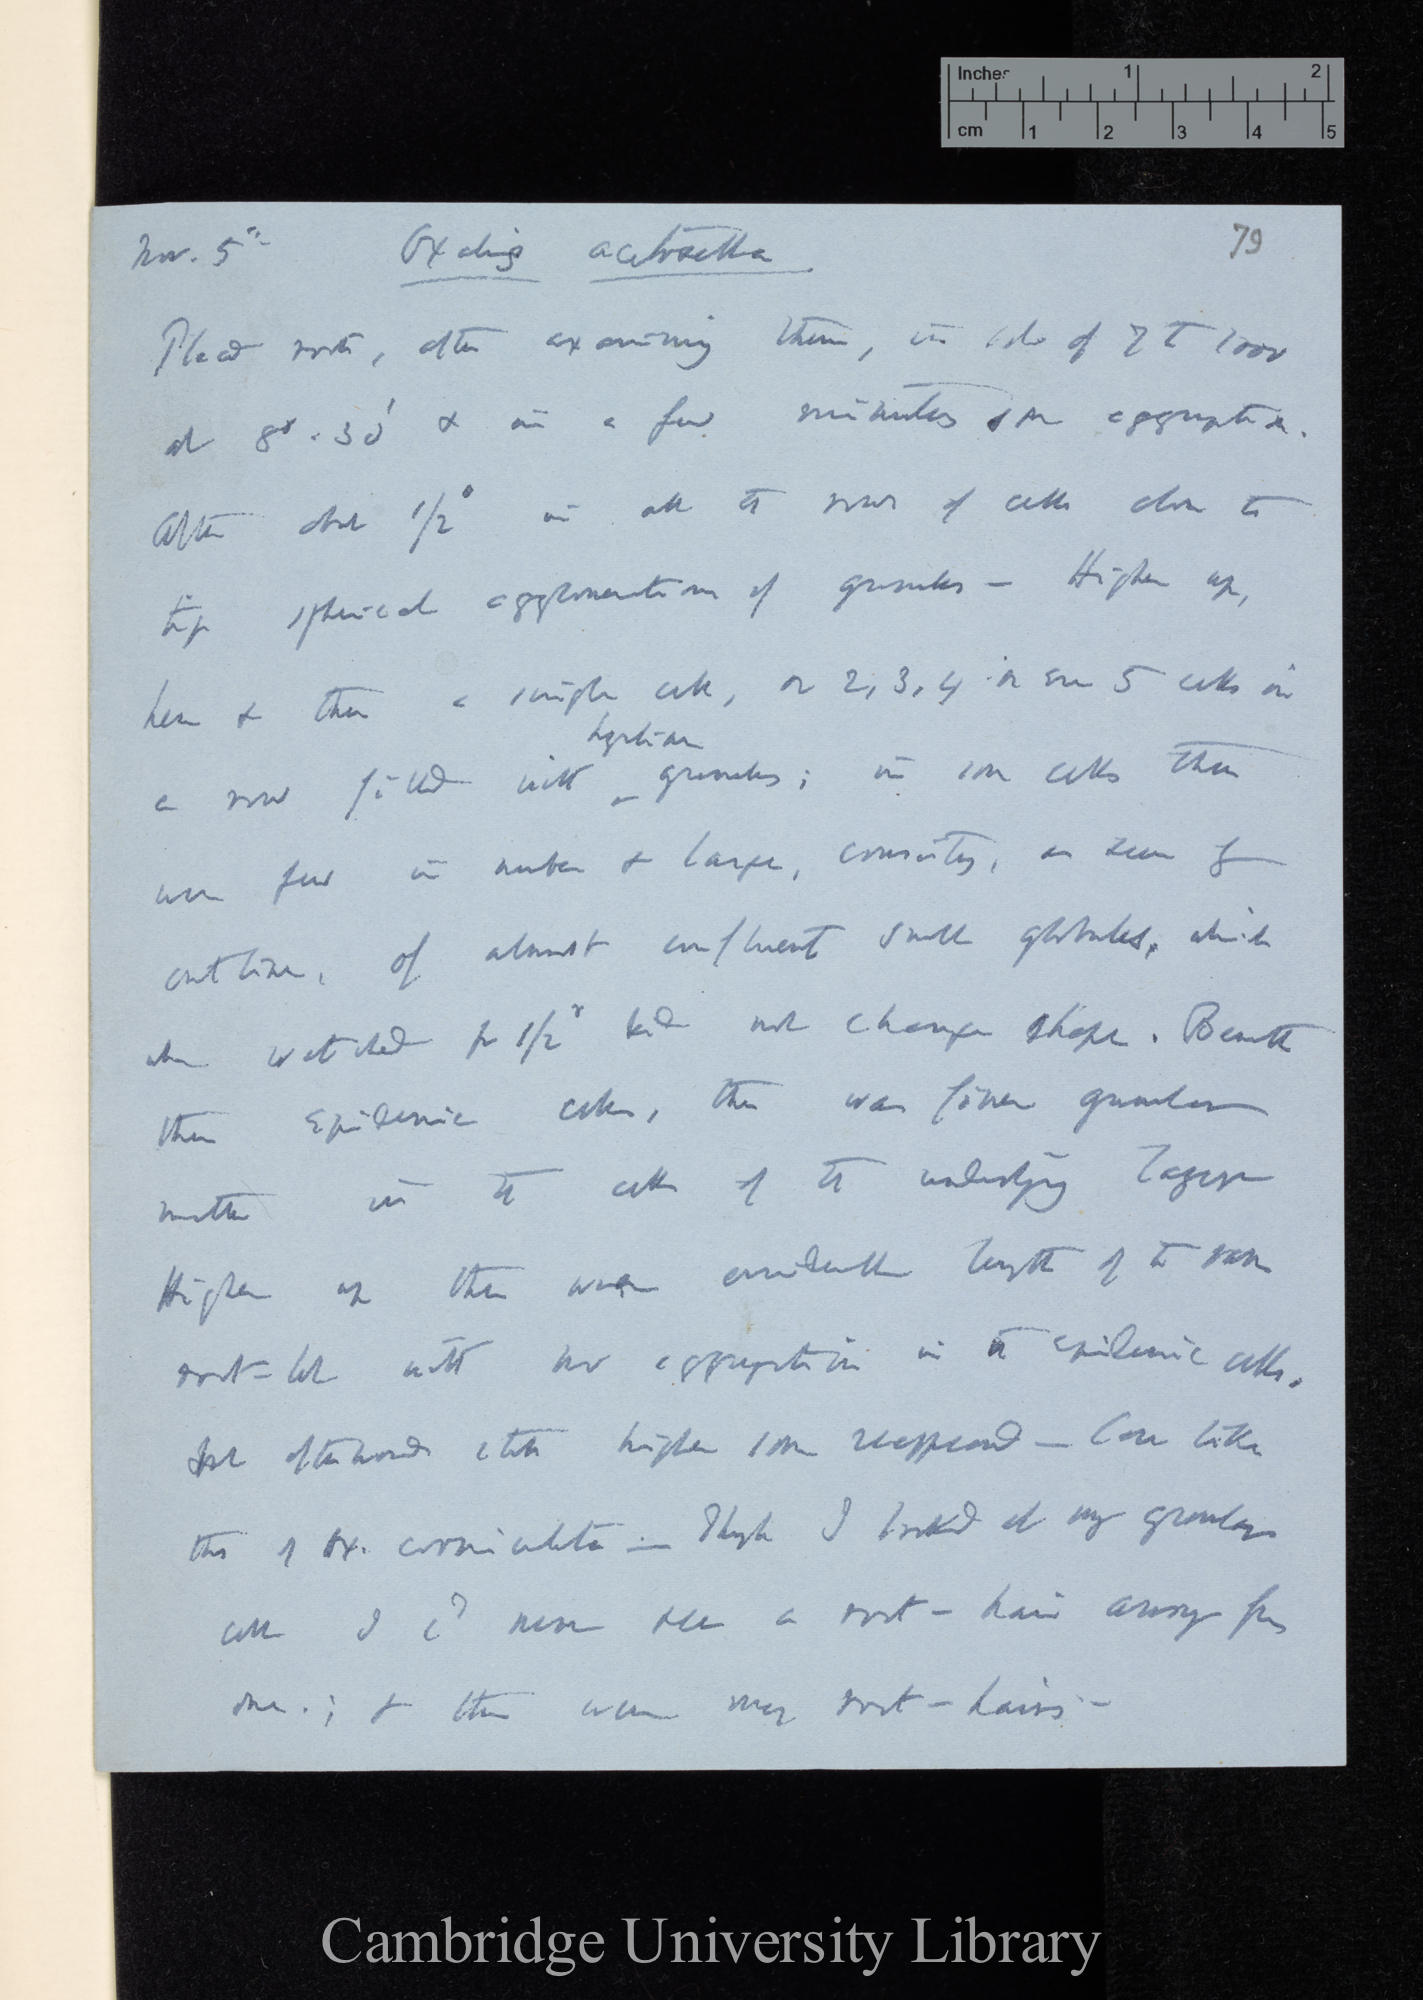 Inches 1 2
cm 1 2 3 4 5
79
Nov. 5th Oxalis acetosella
Placed roots, after examining them, in sol. of 7 to 1000
at 8°. 30' & in a few minutes some aggregation.
After about 1/2° in all the rows of cells close to
tip spherical agglomerations of granules — Higher up,
here & there a single cell, or 2, 3, 4 or even 5 cells in
hyaline
a row filled with granules; in some cells these
were few in number & large, consisting, as seen from
outline, of almost confluent small globules, which
when watched for 1/2° did not change shape. Beneath
these epidermic cells, there was finer granular
matter in the cells of the underlying layer
Higher up there were considerable length of the same
root-let with no aggregation in the epidermic cells,
but afterwards still higher some reappeared — Case like
that of Ox. corniculata — Though I looked at many granular
cells I cd never see a root-hair arising from
one.; & there were many root-hairs —
Cambridge University Library